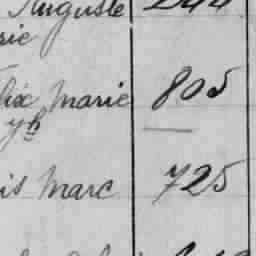 Auguste
rie
lix Marie 805
yh
is Marc 725